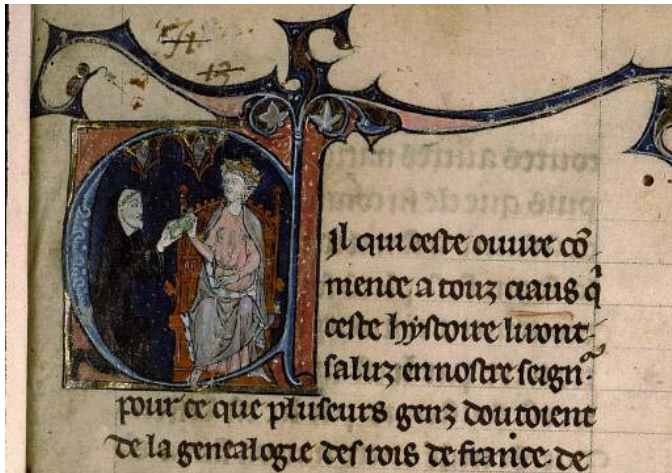 71
13
Cil qui ceste ouvre cō
mence a touz ciaus q̄
ceste hystoire liront
saluz en nostre seignʳ.
pour ce que pluseurs genz doutoient
de la genealogie des rois de france. de